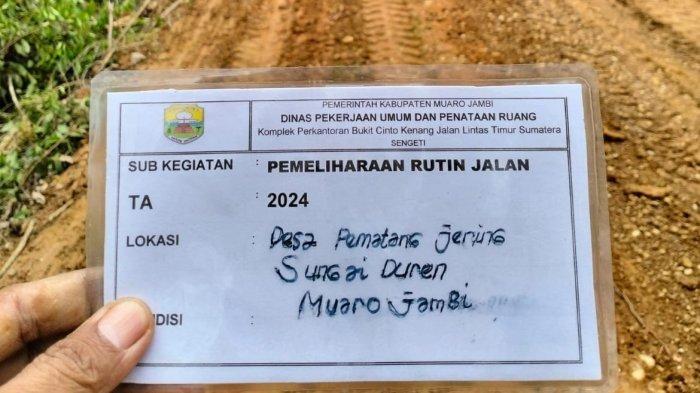 PEMERINTAH KABUPATEN MUARO JAMBI
DINAS PEKERJAAN UMUM DAN PENATAAN RUANG
Komplek Perkantoran Bukit Cinto Kenang Jalan Lintas Timur Sumatera
SENGETI
SUB KEGIATAN : PEMELIHARAAN RUTIN JALAN
TA : 2024
LOKASI : Desa Pematang Jering
Sungai Duren
Muaro Jambi
DISI :